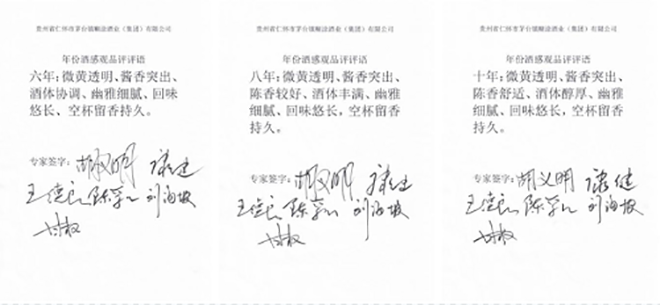 贵州省仁怀市茅台镇顺洁酒业（集团）有限公司
年份酒感观品评评语
六年：微黄透明、酱香突出、
酒体协调、幽雅细腻、回味
悠长、空杯留香持久。
专家签字：胡义明 康健
王德良 陈
贵州省仁怀市茅台镇顺洁酒业（集团）有限公司
年份酒感观品评评语
八年：微黄透明、酱香突出、
陈香较好、酒体丰满、幽雅
细腻、回味悠长，空杯留香
持久。
专家签字：胡义明 康健
王德良 陈
贵州省仁怀市茅台镇顺洁酒业（集团）有限公司
年份酒感观品评评语
十年：微黄透明、酱香突出、
陈香舒适、酒体醇厚、幽雅
细腻、回味悠长、空杯留香
持久。
专家签字：胡义明 康健
王德良 陈